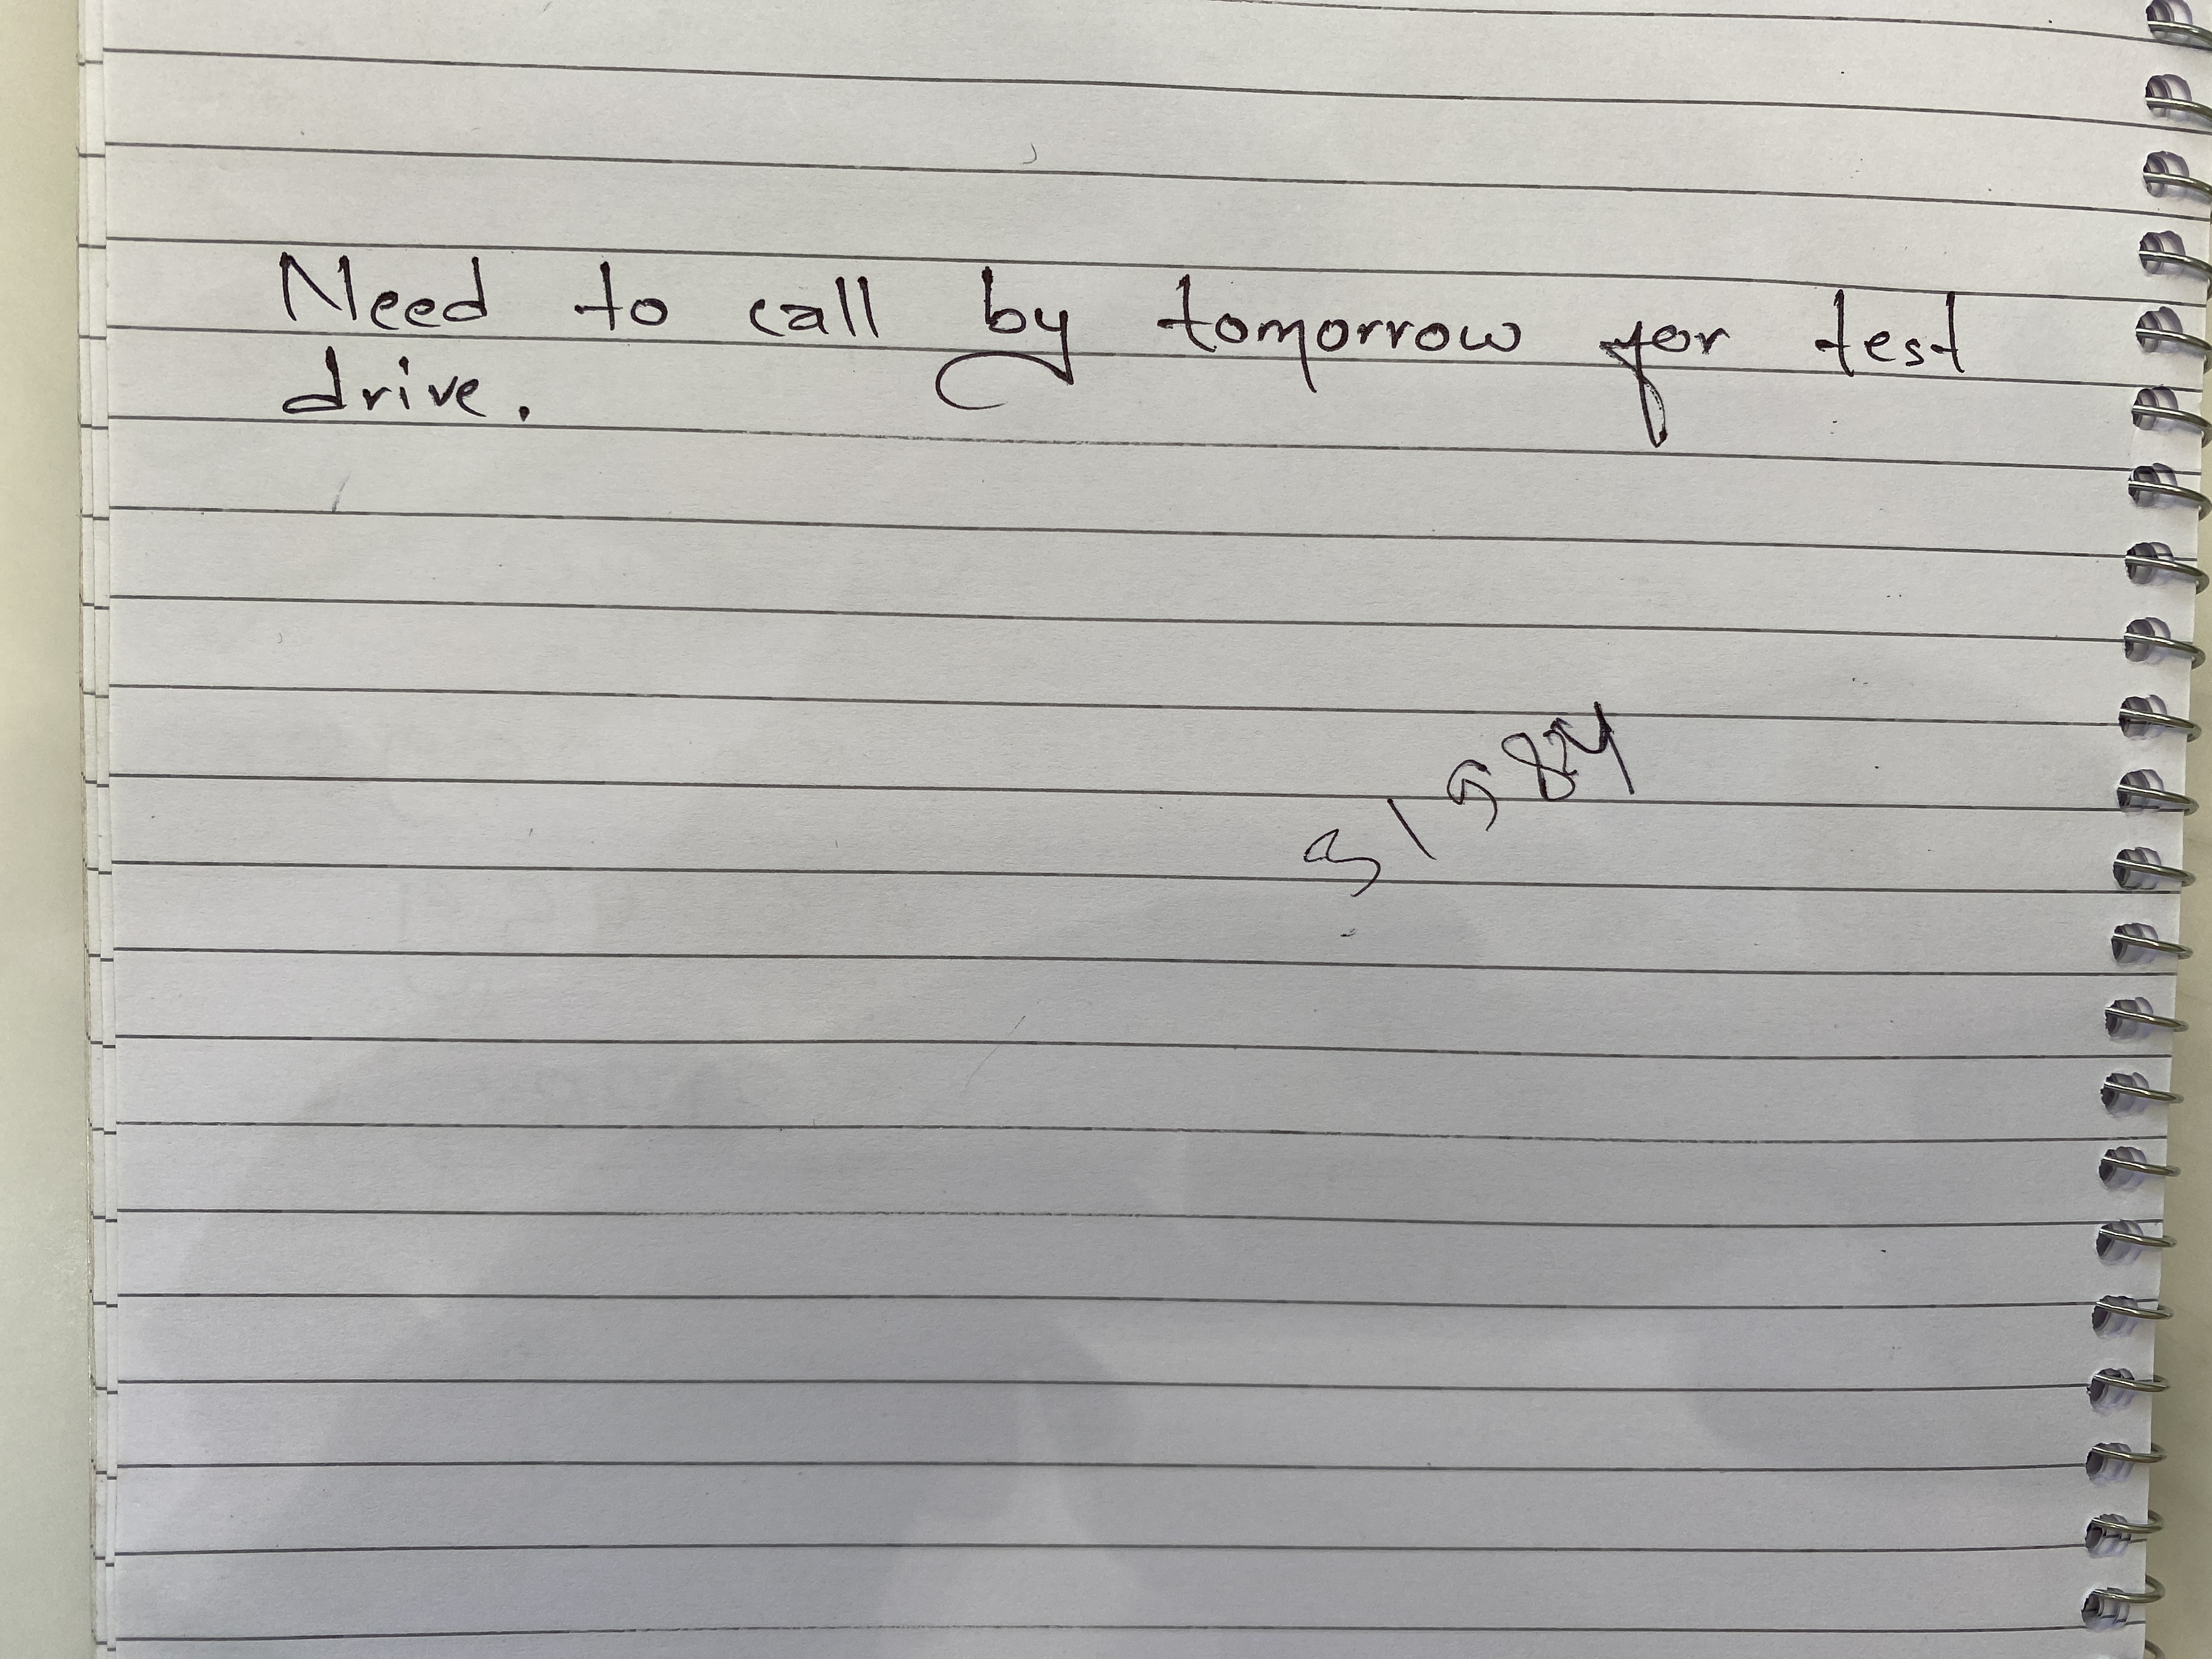 Need to call by tomorrow for test
drive.